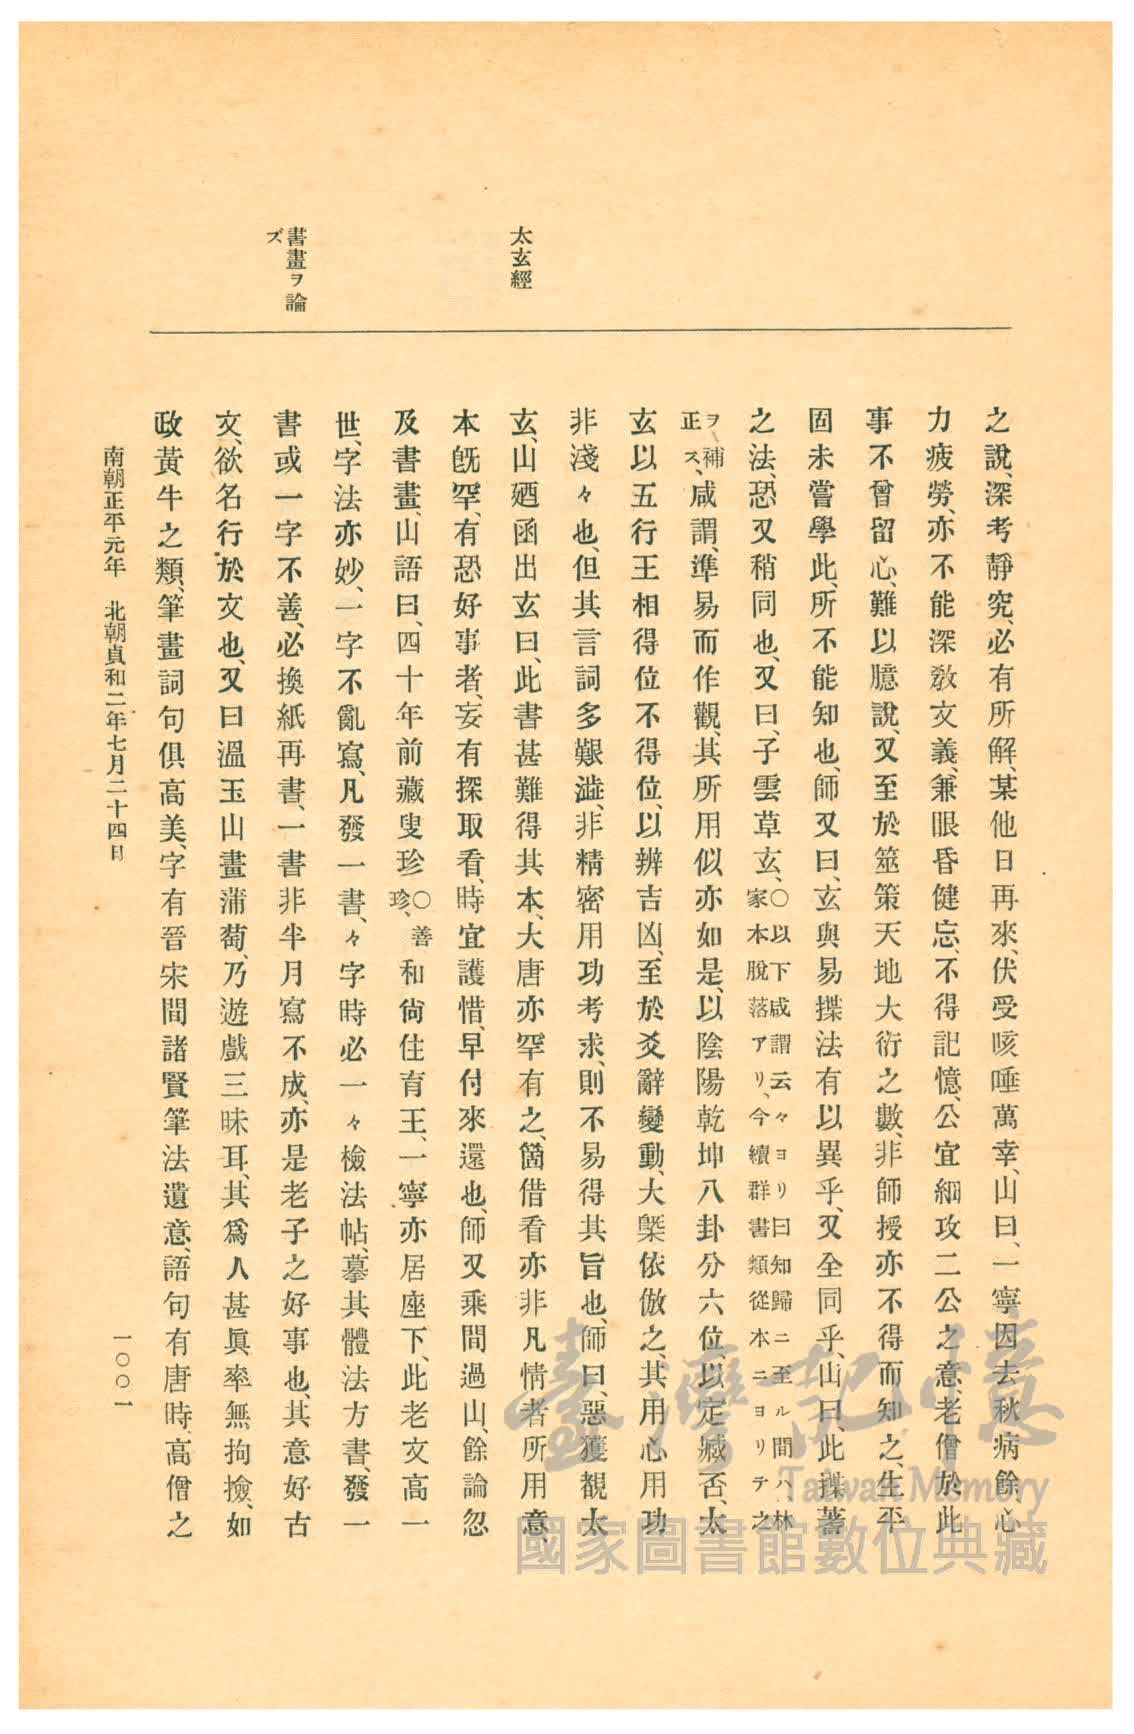 太玄經
書畫ヲ論
ズ
之說、深考靜究、必有所解、某他日再來、伏受咳唾萬幸、山曰、一寧因去秋病餘、心
力疲勞、亦不能深敎文義、兼眼昏健忘、不得記憶、公宜細攻二公之意、老僧於此
事不曾留心、難以臆說、又至於筮策天地大衍之數、非師授亦不得而知之、生平
固未嘗學此、所不能知也、師又曰、玄與易揲法有以異乎、又全同乎、山曰、此揲蓍
之法、恐又稍同也、又曰、子雲草玄、○以下咸謂云々ヨリ曰知歸ニ至ル間ハ、林家本脫落アリ、今續群書類從本ニヨリテ之
ヲ補正ス、咸謂、準易而作觀、其所用似亦如是、以陰陽乾坤八卦分六位、以定臧否、太
玄以五行王相得位不得位、以辨吉凶、至於爻辭變動、大槩依倣之、其用心用功
非淺々也、但其言詞多艱澁、非精密用功考求、則不易得其旨也、師曰、惡獲觀太
玄、山廼函出玄曰、此書甚難得其本、大唐亦罕有之、箇借看亦非凡情者所用意、
本旣罕、有恐好事者、妄有探取看、時宜護惜、早付來還也、師又乘間過山、餘論忽
及書畫、山語曰、四十年前藏叟珍○善珍、和尙住育王、一寧亦居座下、此老文高一
世、字法亦妙、一字不亂寫、凡發一書、々字時必一々檢法帖、摹其體法方書、發一
書或一字不善、必換紙再書、一書非半月寫不成、亦是老子之好事也、其意好古
文、欲名行於文也、又曰溫玉山畫蒲萄、乃遊戲三昧耳、其爲人甚眞率無拘撿、如
政黃牛之類、筆畫詞句俱高美、字有晉宋間諸賢筆法遺意、語句有唐時高僧之
南朝正平元年　北朝貞和二年七月二十四日
一〇〇一
臺灣記憶
Taiwan Memory
國家圖書館數位典藏